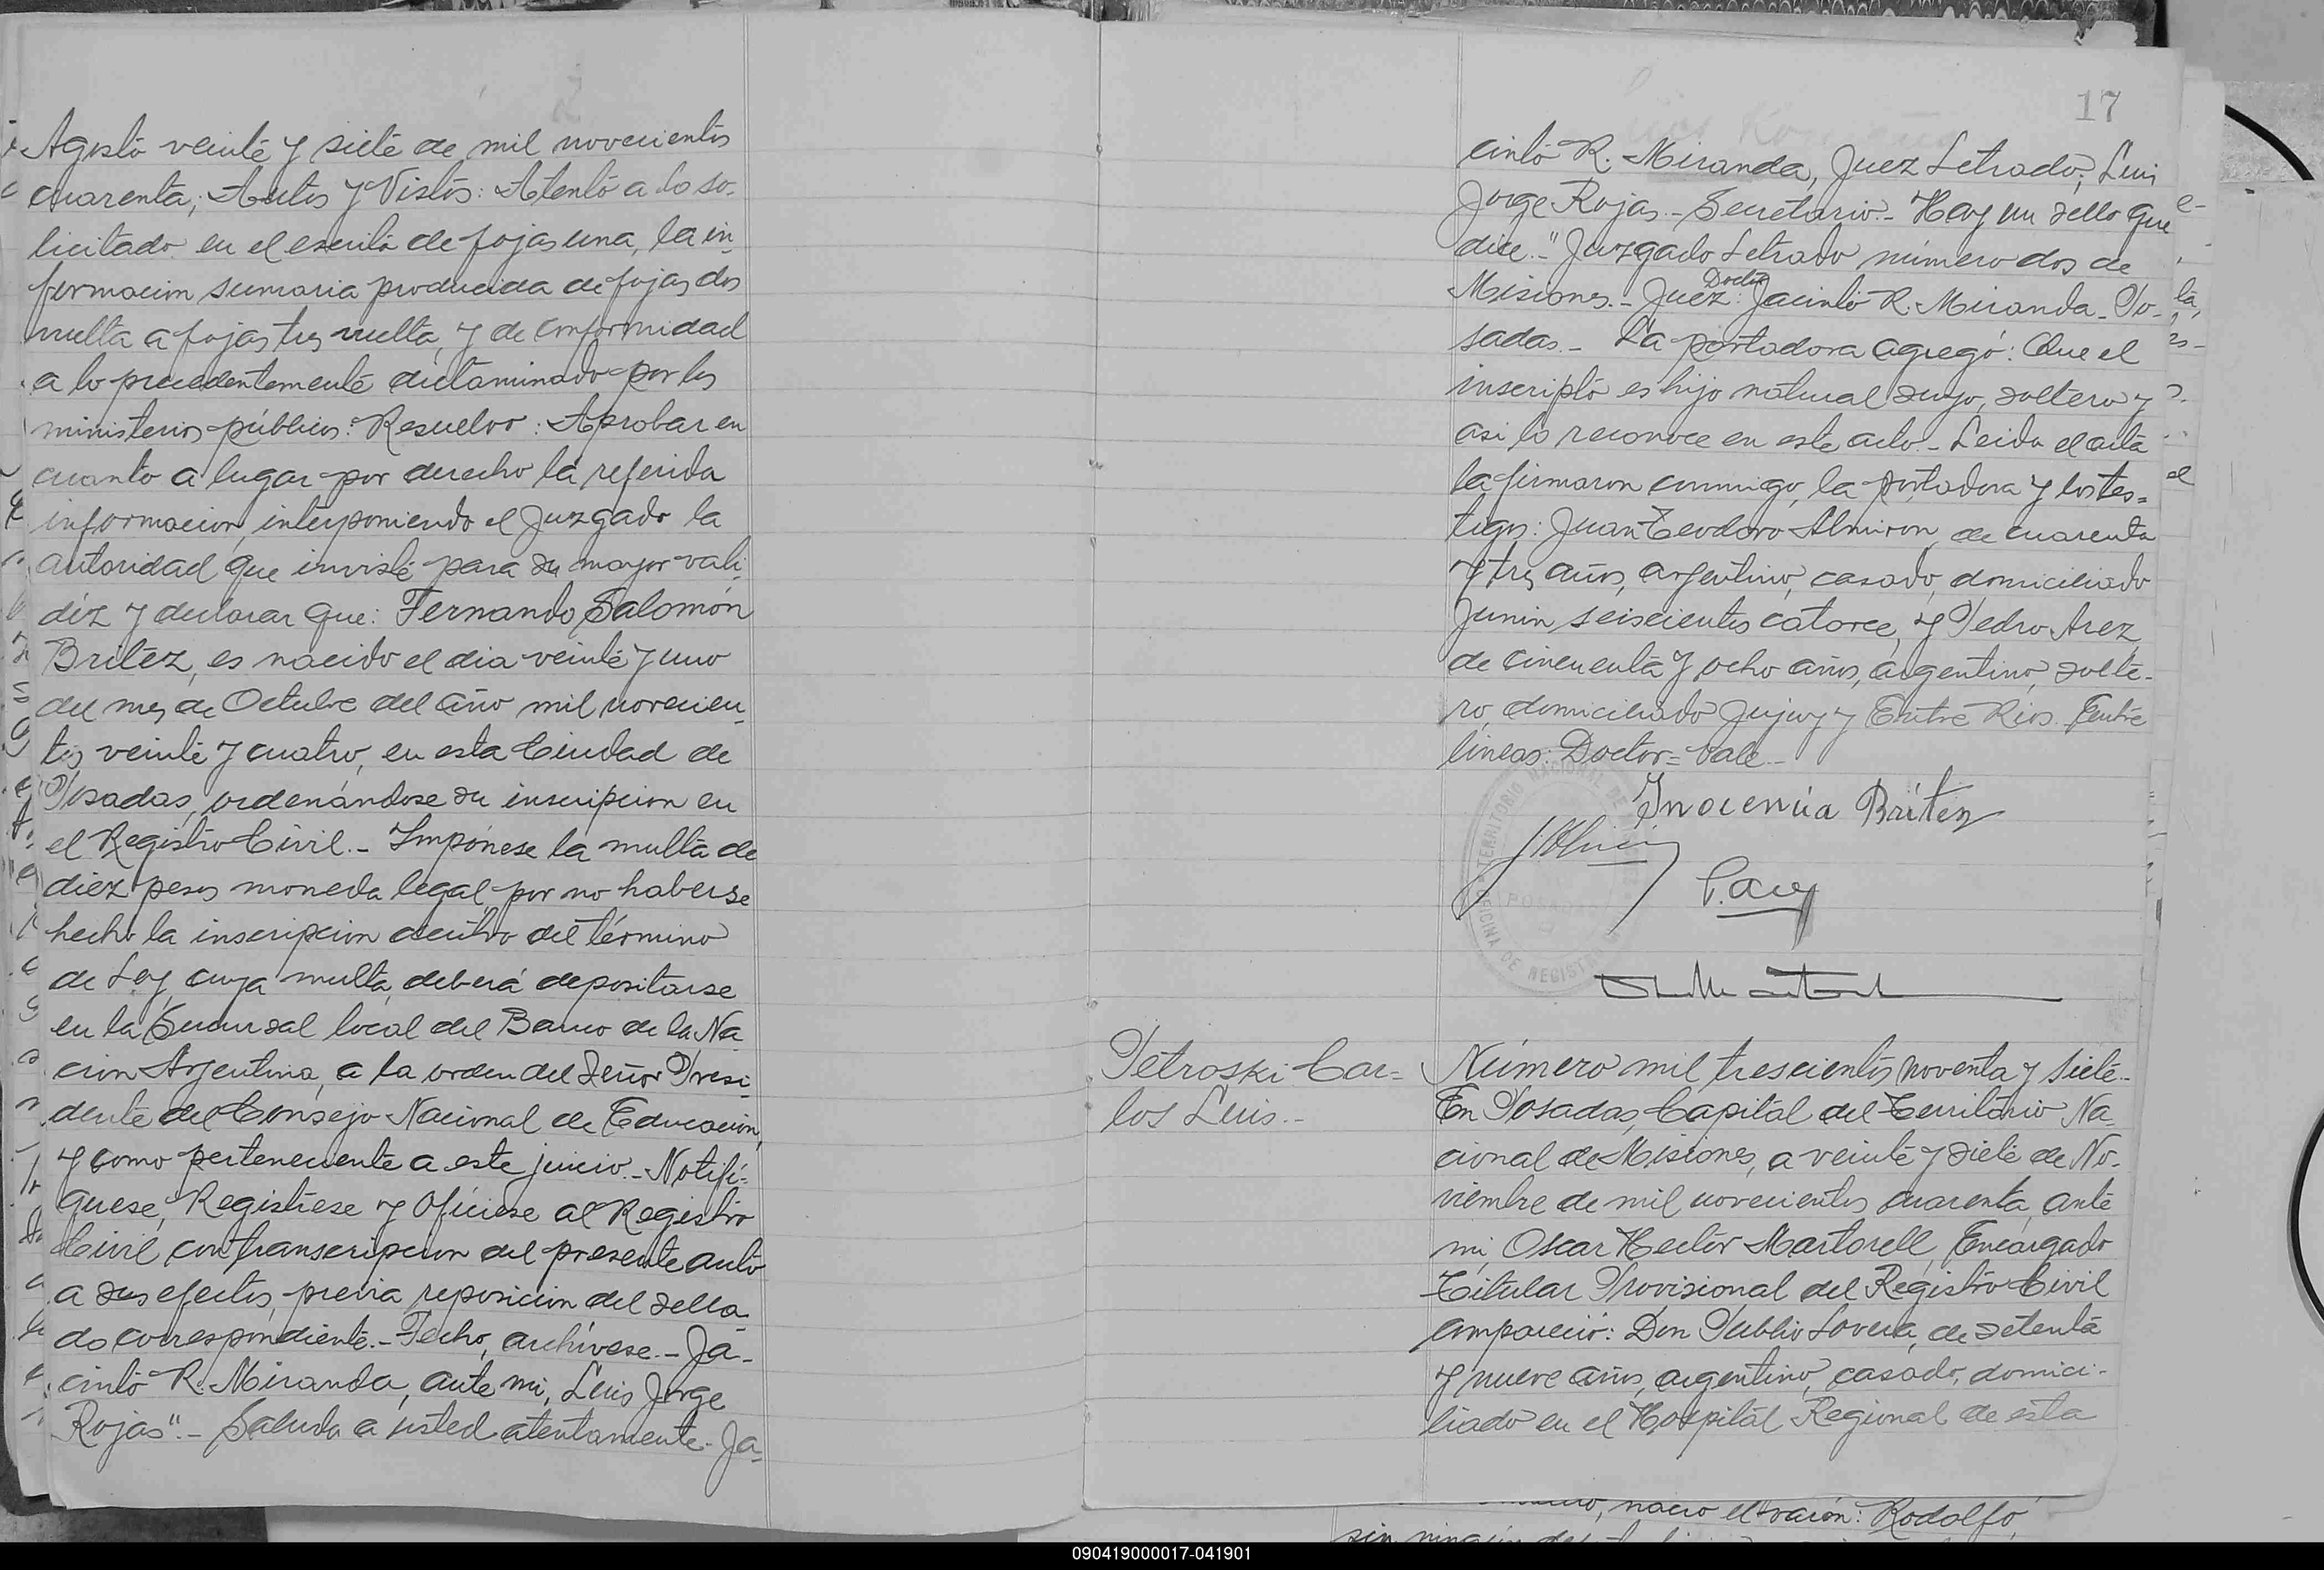 Agosto veinte y siete de mil novecientos
cuarenta; Autos y Vistos: Atento a lo so-
licitado en el escrito de fojas una, la in-
formacion sumaria producida de fojas dos
vuelta a fojas tres vuelta, y de conformidad
a lo precedentemente dictaminado por los
ministerios públicos: Resuelvo: Aprobar en
cuanto a lugar por derecho la referida
informacion, interponiendo el Juzgado la
autoridad que inviste para su mayor vali-
déz y declarar que: Fernando Salomón
Britez, es nacido el dia veinte y uno
del mes de Octubre del año mil novecien-
tos veinte y cuatro, en esta Ciudad de
Posadas, ordenándose su inscripcion en
el Registro Civil.- Impónese la multa de
diez pesos moneda legal, por no haberse
hecho la inscripcion dentro del término
de Ley, cuya multa, deberá depositarse
en la Sucursal local del Banco de la Na-
cion Argentina, a la orden del Señor Presi-
dente del Consejo Nacional de Educacion,
y como perteneciente a este juicio.- Notifí-
quese, Regístrese y Ofíciese al Registro
Civil con transcripcion del presente auto
a sus efectos, previa reposicion del sella-
do correspondiente.- Fecho, archívese.- Ja-
cinto R. Miranda, ante mi, Luis Jorge
Rojas".- Saluda a usted atentamente.- Ja-
17
cinto R. Miranda, Juez Letrado; Luis
Jorge Rojas.- Secretario.- Hay un sello que
dice.- "Juzgado Letrado número dos de
Doctor
Misiones.- Juez: Jacinto R. Miranda.- Po-
sadas.- La portadora agregó: Que el
inscripto es hijo natural suyo, soltero y
asi lo reconoce en este acto.- Leida el acta
la firmaron conmigo, la portadora y los tes-
tigos: Juan Teodoro Almiron, de cuarenta
y tres años, argentino, casado, domiciliado
Junin seiscientos catorce, y Pedro Arez,
de cincuenta y ocho años, argentino, solte-
ro, domiciliado Jujuy y Entre Rios. Entre
lineas: Doctor = Vale.-
Inocencia Britez
TERRITORIO NACIONAL DE
POSADAS
OFICINA DE REGISTRO
Petroski Car-
los Luis.-
Número mil trescientos noventa y siete.-
En Posadas, Capital del Territorio Na-
cional de Misiones, a veinte y siete de No-
viembre de mil novecientos cuarenta, ante
mi, Oscar Hector Martorell, Encargado
Titular Provisional del Registro Civil
compareció: Don Publio Lovera, de setenta
y nueve años, argentino, casado, domici-
liado en el Hospital Regional de esta
nacio el varón: Rodolfo,
sin ningún
090419000017-041901